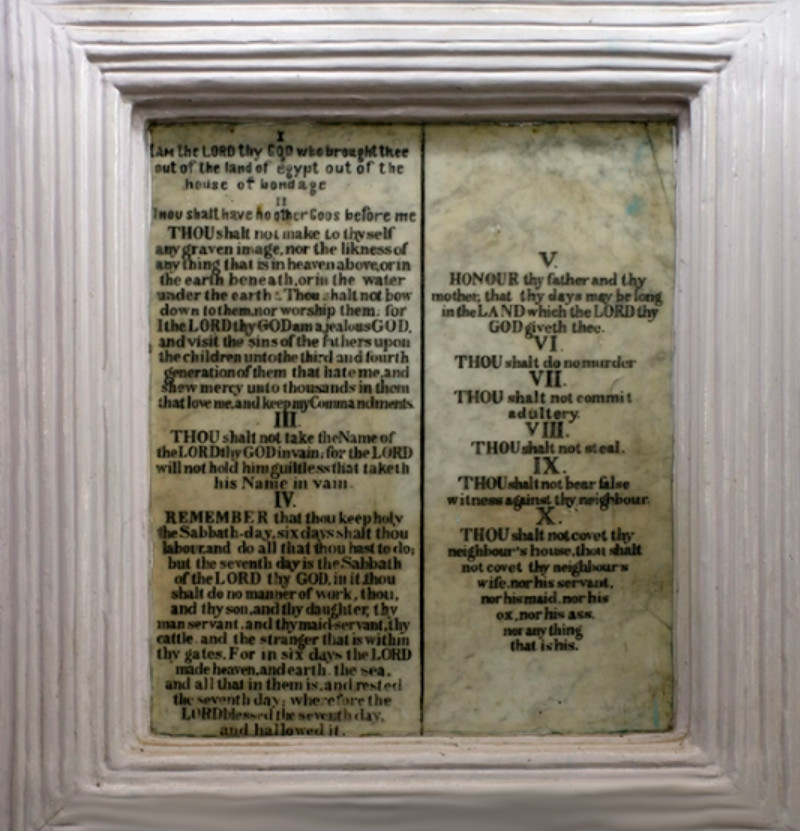 I
I AM the LORD thy GOD who brought thee
out of the land of egypt out of the
house of bondage
II
Thou shalt have no other Gods before me
THOU shalt not make to thyself
any graven image, nor the likness of
any thing that is in heaven above, or in
the earth beneath, or in the water
under the earth: Thou shalt not bow
down to them, nor worship them: for
I the LORD thy GOD am a jealous GOD,
and visit the sins of the Fathers upon
the children unto the third and fourth
generation of them that hate me, and
shew mercy unto thousands in them
that love me, and keep my Commandments.
III.
THOU shalt not take the Name of
the LORD thy GOD in vain: for the LORD
will not hold him guiltless that taketh
his Name in vain.
IV.
REMEMBER that thou keep holy
the Sabbath-day, six days shalt thou
labour, and do all that thou hast to do;
but the seventh day is the Sabbath
of the LORD thy GOD, in it thou
shalt do no manner of work, thou,
and thy son, and thy daughter, thy
man servant, and thy maid-servant, thy
cattle, and the stranger that is within
thy gates. For in six days the LORD
made heaven, and earth, the sea,
and all that in them is, and rested
the seventh day; wherefore the
LORD blessed the seventh day,
and hallowed it.
V.
HONOUR thy father and thy
mother, that thy days may be long
in the LAND which the LORD thy
GOD giveth thee.
VI.
THOU shalt do no murder
VII.
THOU shalt not commit
adultery.
VIII.
THOU shalt not steal.
IX.
THOU shalt not bear false
witness against thy neighbour.
X.
THOU shalt not covet thy
neighbour's house, thou shalt
not covet thy neighbour's
wife, nor his servant,
nor his maid, nor his
ox, nor his ass,
nor any thing
that is his.